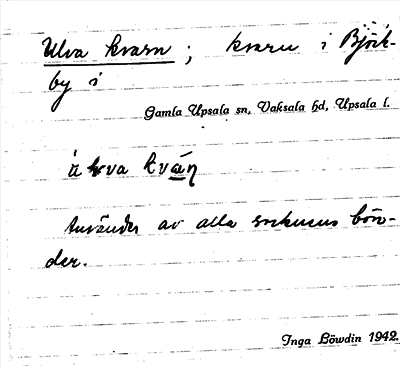 Ulva kvarn ; kvarn i Björk-
by i
Gamla Upsala sn, Vaksala hd, Upsala l.
kván
Användes av alla socknens bön-
der.
Inga Löwdin 1942.